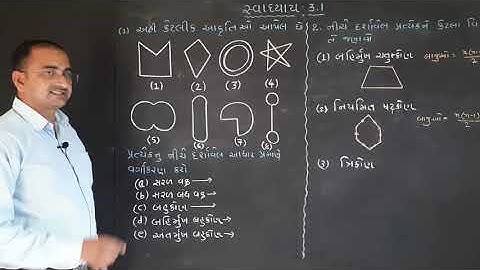 સ્વાધ્યાય : 3.1
(1) અહીં કેટલીક આકૃતિઓ આપેલ છે
(1) (2) (3) (4)
(5) (6) (7) (8)
પ્રત્યેકનું નીચે દર્શાવેલ આધાર પ્રમાણે
વર્ગીકરણ કરો
(a) સરળ વક્ર →
(b) સરળ બંધ વક્ર →
(c) બહુકોણ →
(d) બહિર્મુખ બહુકોણ →
(e) અંતર્મુખ બહુકોણ →
2. નીચે દર્શાવેલ પ્રત્યેકને કેટલા વિ
તે જણાવો
(1) બહિર્મુખ ચતુષ્કોણ
(2) નિયમિત ષટ્કોણ
(3) ત્રિકોણ